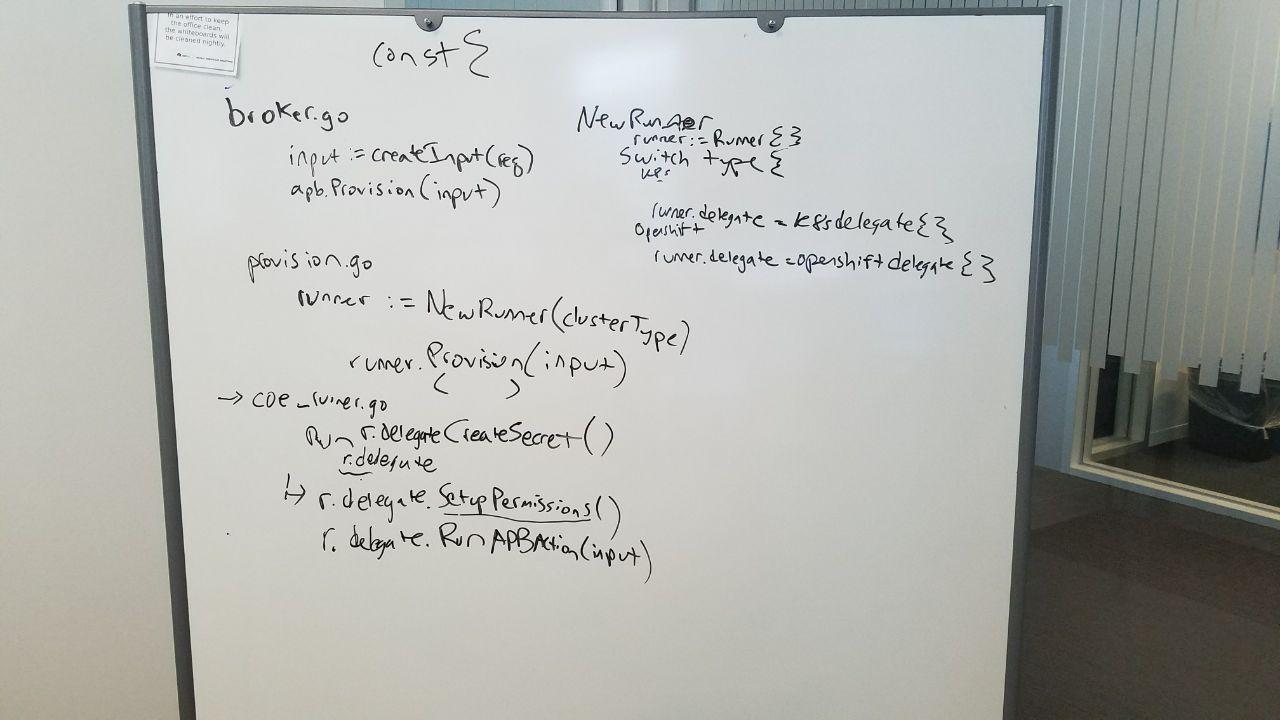 In an effort to keep
the office clean,
the whiteboards will
be cleaned nightly.
const {
broker.go
input := createInput(req)
apb.Provision(input)
provision.go
runner := NewRunner(clusterType)
runner.Provision(input)
( )
→ coe_runner.go
Run r.delegate CreateSecret()
r.delegate
↳ r.delegate.SetupPermissions()
r.delegate.RunAPBAction(input)
NewRunner
runner := Runner{}
Switch type {
runner.delegate = k8sdelegate{}
Openshift
runner.delegate = openshift delegate{}